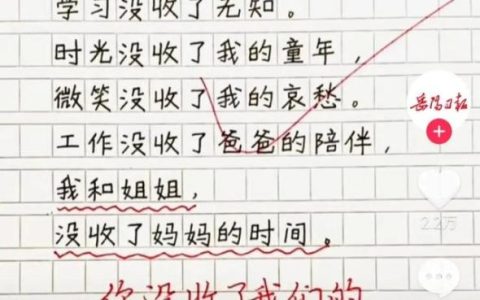 学习没收了无知。
时光没收了我的童年，
微笑没收了我的哀愁。
工作没收了爸爸的陪伴，
我和姐姐，
没收了妈妈的时间。
你没收了我们的
岳阳日报
2.2万